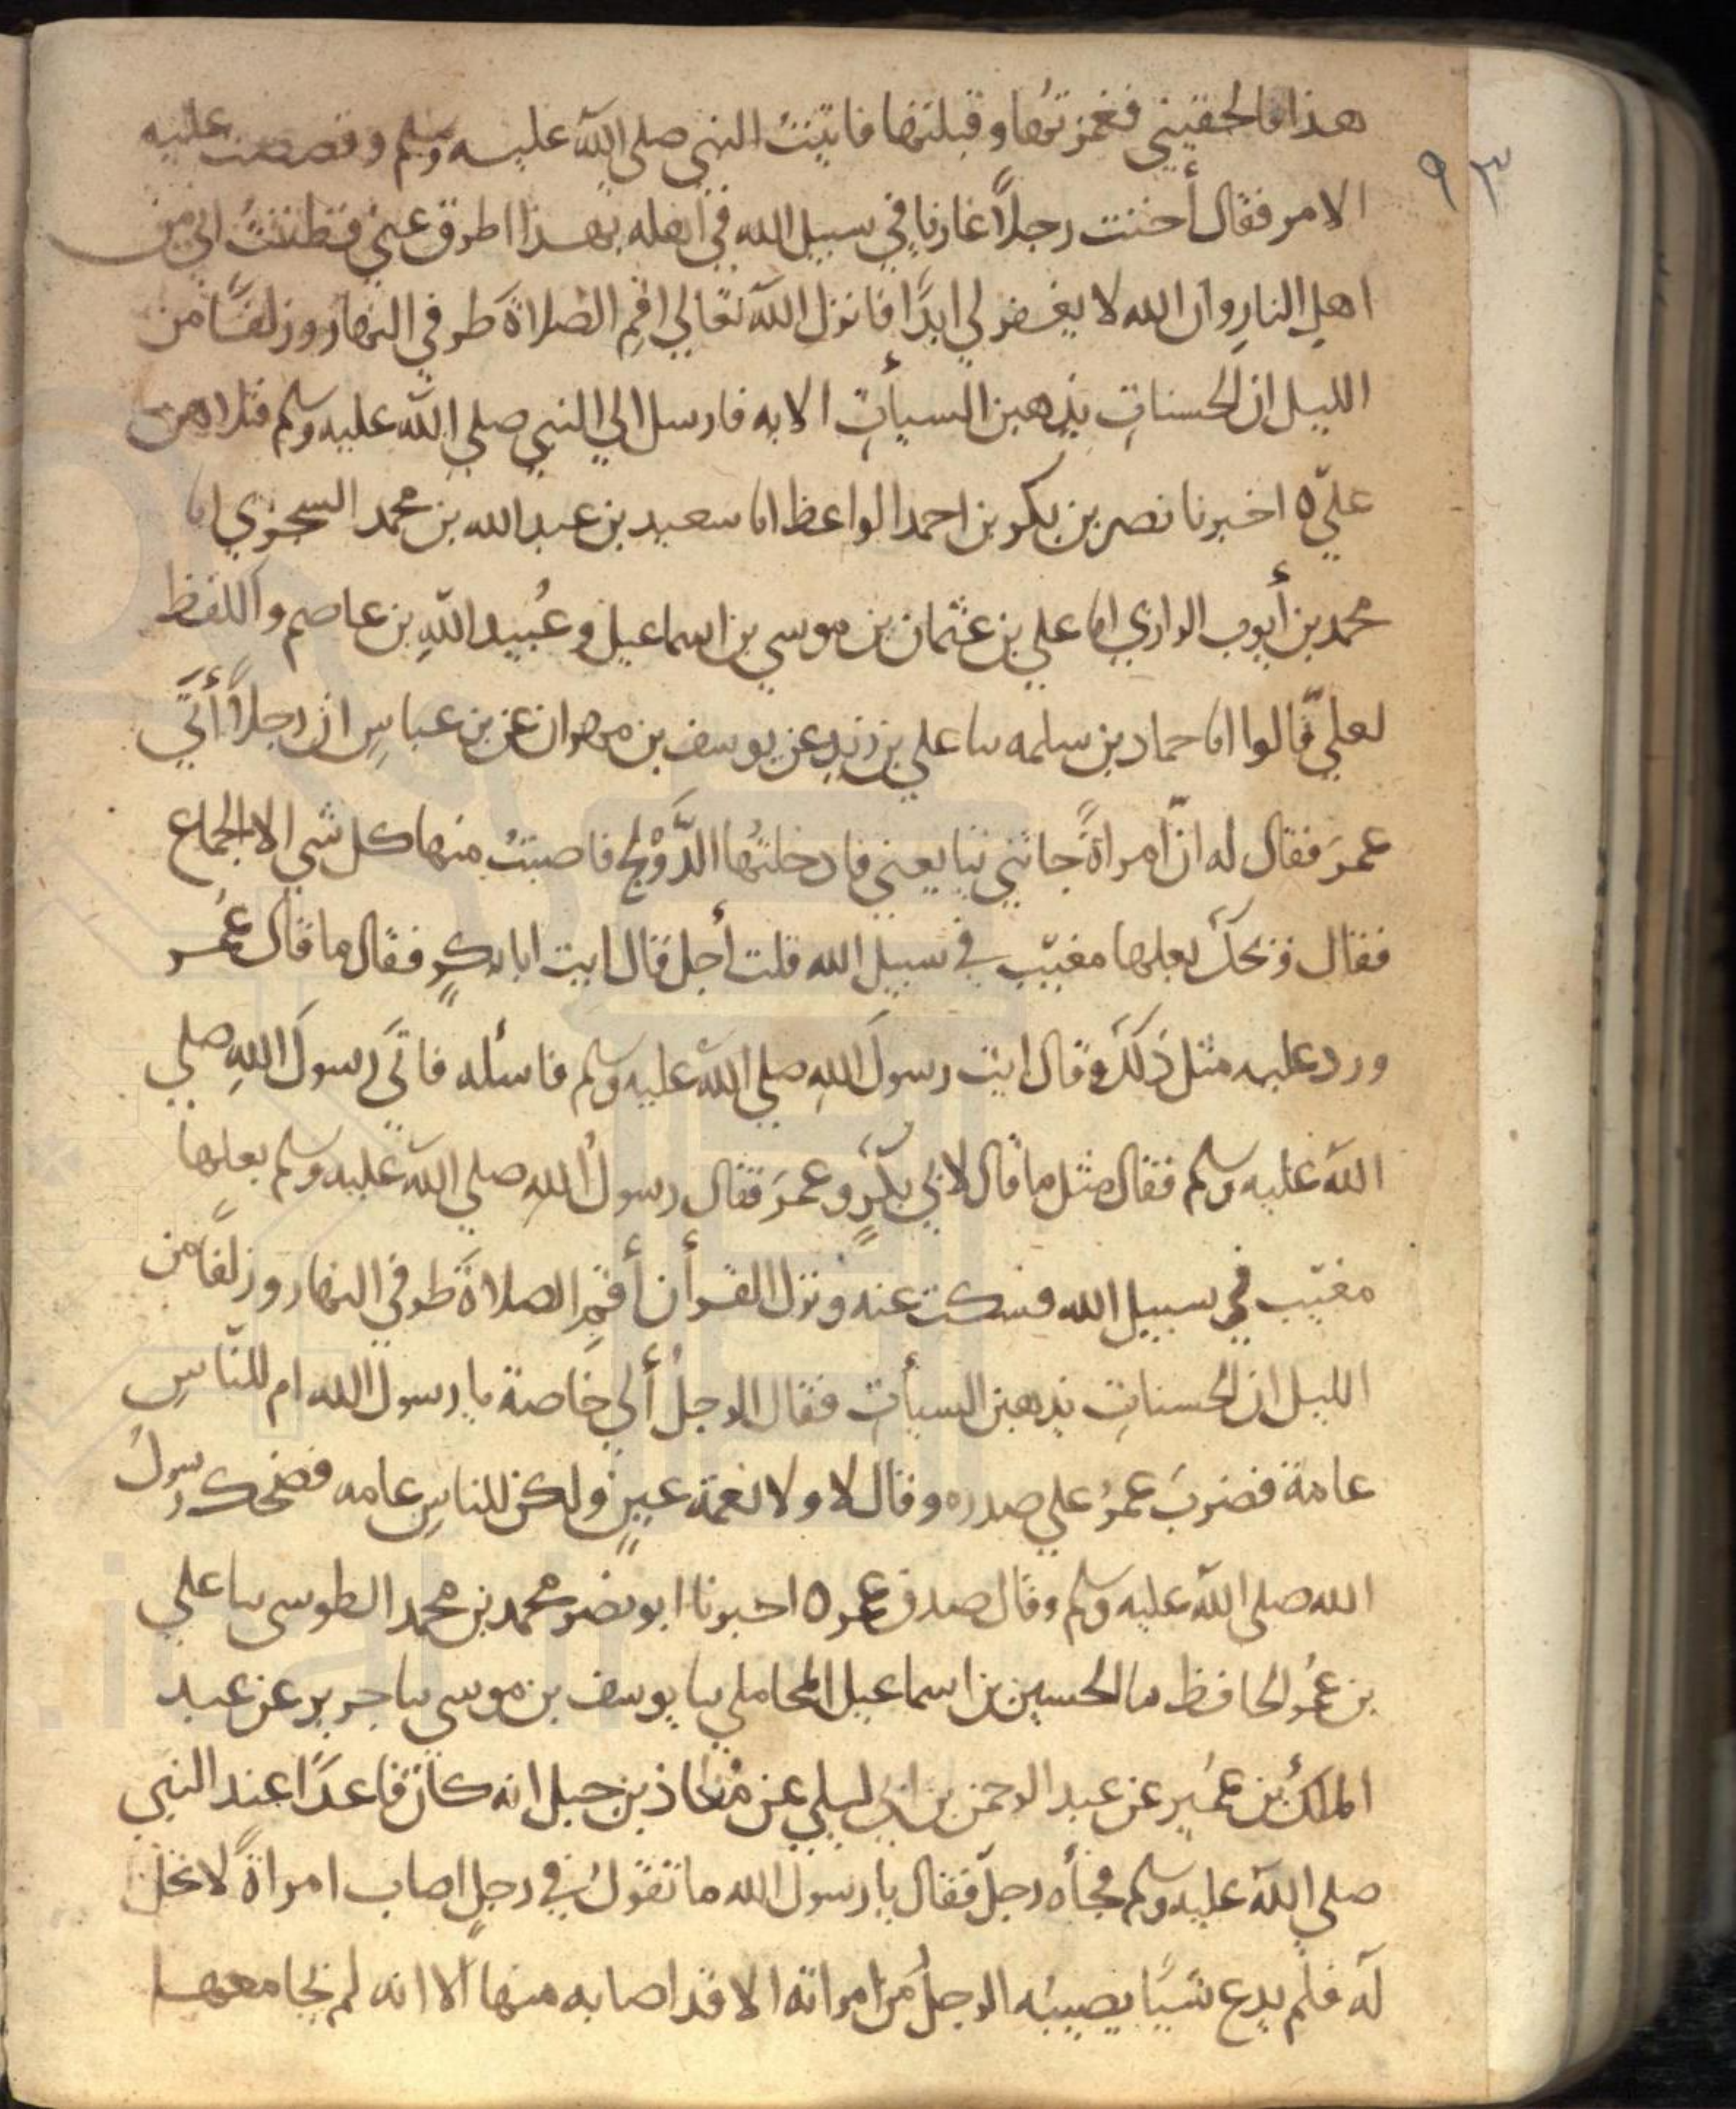 هذا فالحقيني فغمزتها وقبلتها فاتيت النبي صلى الله عليه وسلم وقصصت عليه
٩٣
الامر فقال أخنت رجلاً غازيا في سبيل الله في أهله بهذا اطرق عني فظننتُ اني من
اهل النارِ وان الله لا يغفر لي ابدًا فانزل الله تعالي اقمِ الصلاةَ طرفي النهار وزلفًا من
الليل ان الحسناتِ يذهبن السيأتِ الايه فارسل الي النبي صلي الله عليه وسلم فتلاهن
عليّ ٥ اخبرنا نصر بن بكر بن احمد الواعظ اما سعيد بن عبد الله بن محمد السجزي اما
محمد بن أيوب الرازي اما علي بن عثمان بن موسي بن اسماعيل وعُبيد اللهِ بن عاصم واللفظ
لعليّ قالوا اما حماد بن سلمه ساعلي بن زيد عن يوسف بن مهران عن بن عباسٍ ان رجلاً أتي
عمرَ فقال له انّ امراةً جاتني تبايعني فادخلتُها الدَّوْلج فاصبتُ منها كل شي الا الجماع
فقال ويحكَ بعلها مغيّب في سبيل الله قلت أجل قال ايت ابا بكرٍ فقال ما قال عُمر
ورد عليه مثل ذلكَ وقال ايت رسولَ اللهِ صلي الله عليه وسلم فاسئله فاتَي رسولَ اللهِ صلي
الله عليه وسلم فقال مثل ما قال لابي بكرٍ وعمرَ فقال رسولُ اللهِ صلي الله عليه وسلم بعلها
مغيّب في سبيل الله فسكت عنه ونزل القرأن أقمِ الصلاةَ طرفي النهار وزلفًا من
الليل ان الحسناتِ يذهبن السيأتِ فقال الرجلُ ألي خاصة يا رسول الله ام للنّاسِ
عامة فضربَ عمرُ علي صدره وقال لا ولا نعمة عينٍ ولكن للناسِ عامه فضحك رسولُ
الله صلي الله عليه وسلم وقال صدق عمر ٥ اخبرنا ابو نصر محمد بن محمد الطوسي سا علي
بن عُمر الحافظ سا الحسين بن اسماعيل المحاملي سا يوسف بن موسي سا جرير عن عبد
الملك بن عُمير عن عبد الرحمن بن ابي ليلي عن مُعاذ بن جبل انه كان قاعدًا عند النبي
صلي الله عليه وسلم فجأه رجلٌ فقال يا رسول الله ما تقولُ في رجلٍ اصاب امراةً لا تحل
له فلم يدع شيًا يصيبه الرجلُ من امراته الا قد اصابه منها الا انه لم يجامعها